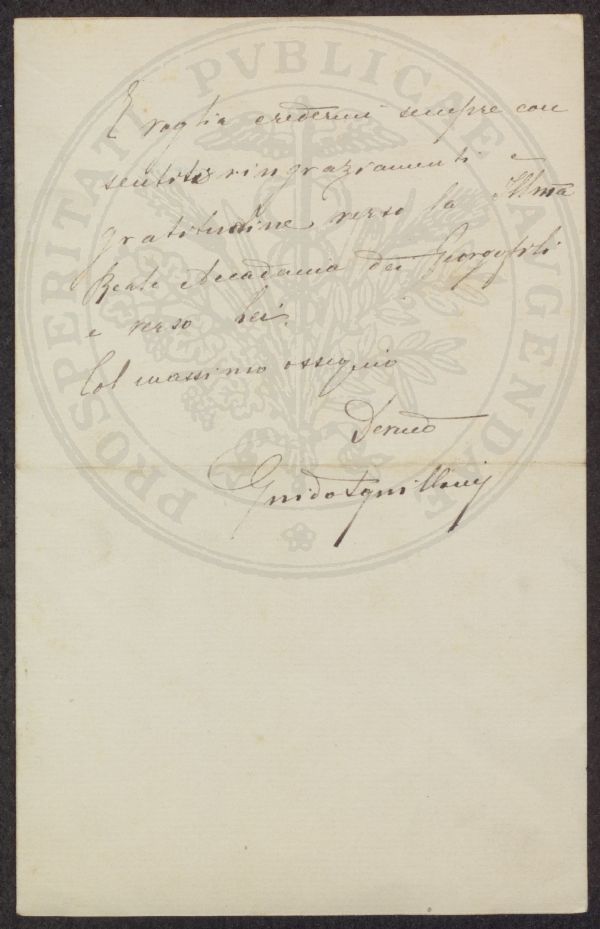 E voglia credermi sempre con
sentiti ringraziamenti e
gratitudine verso la Illma
Reale Accademia dei Georgofili
e verso Lei.
Col massimo ossequio
Devmo
Guido
PROSPERITATI PVBLICAE AVGENDAE